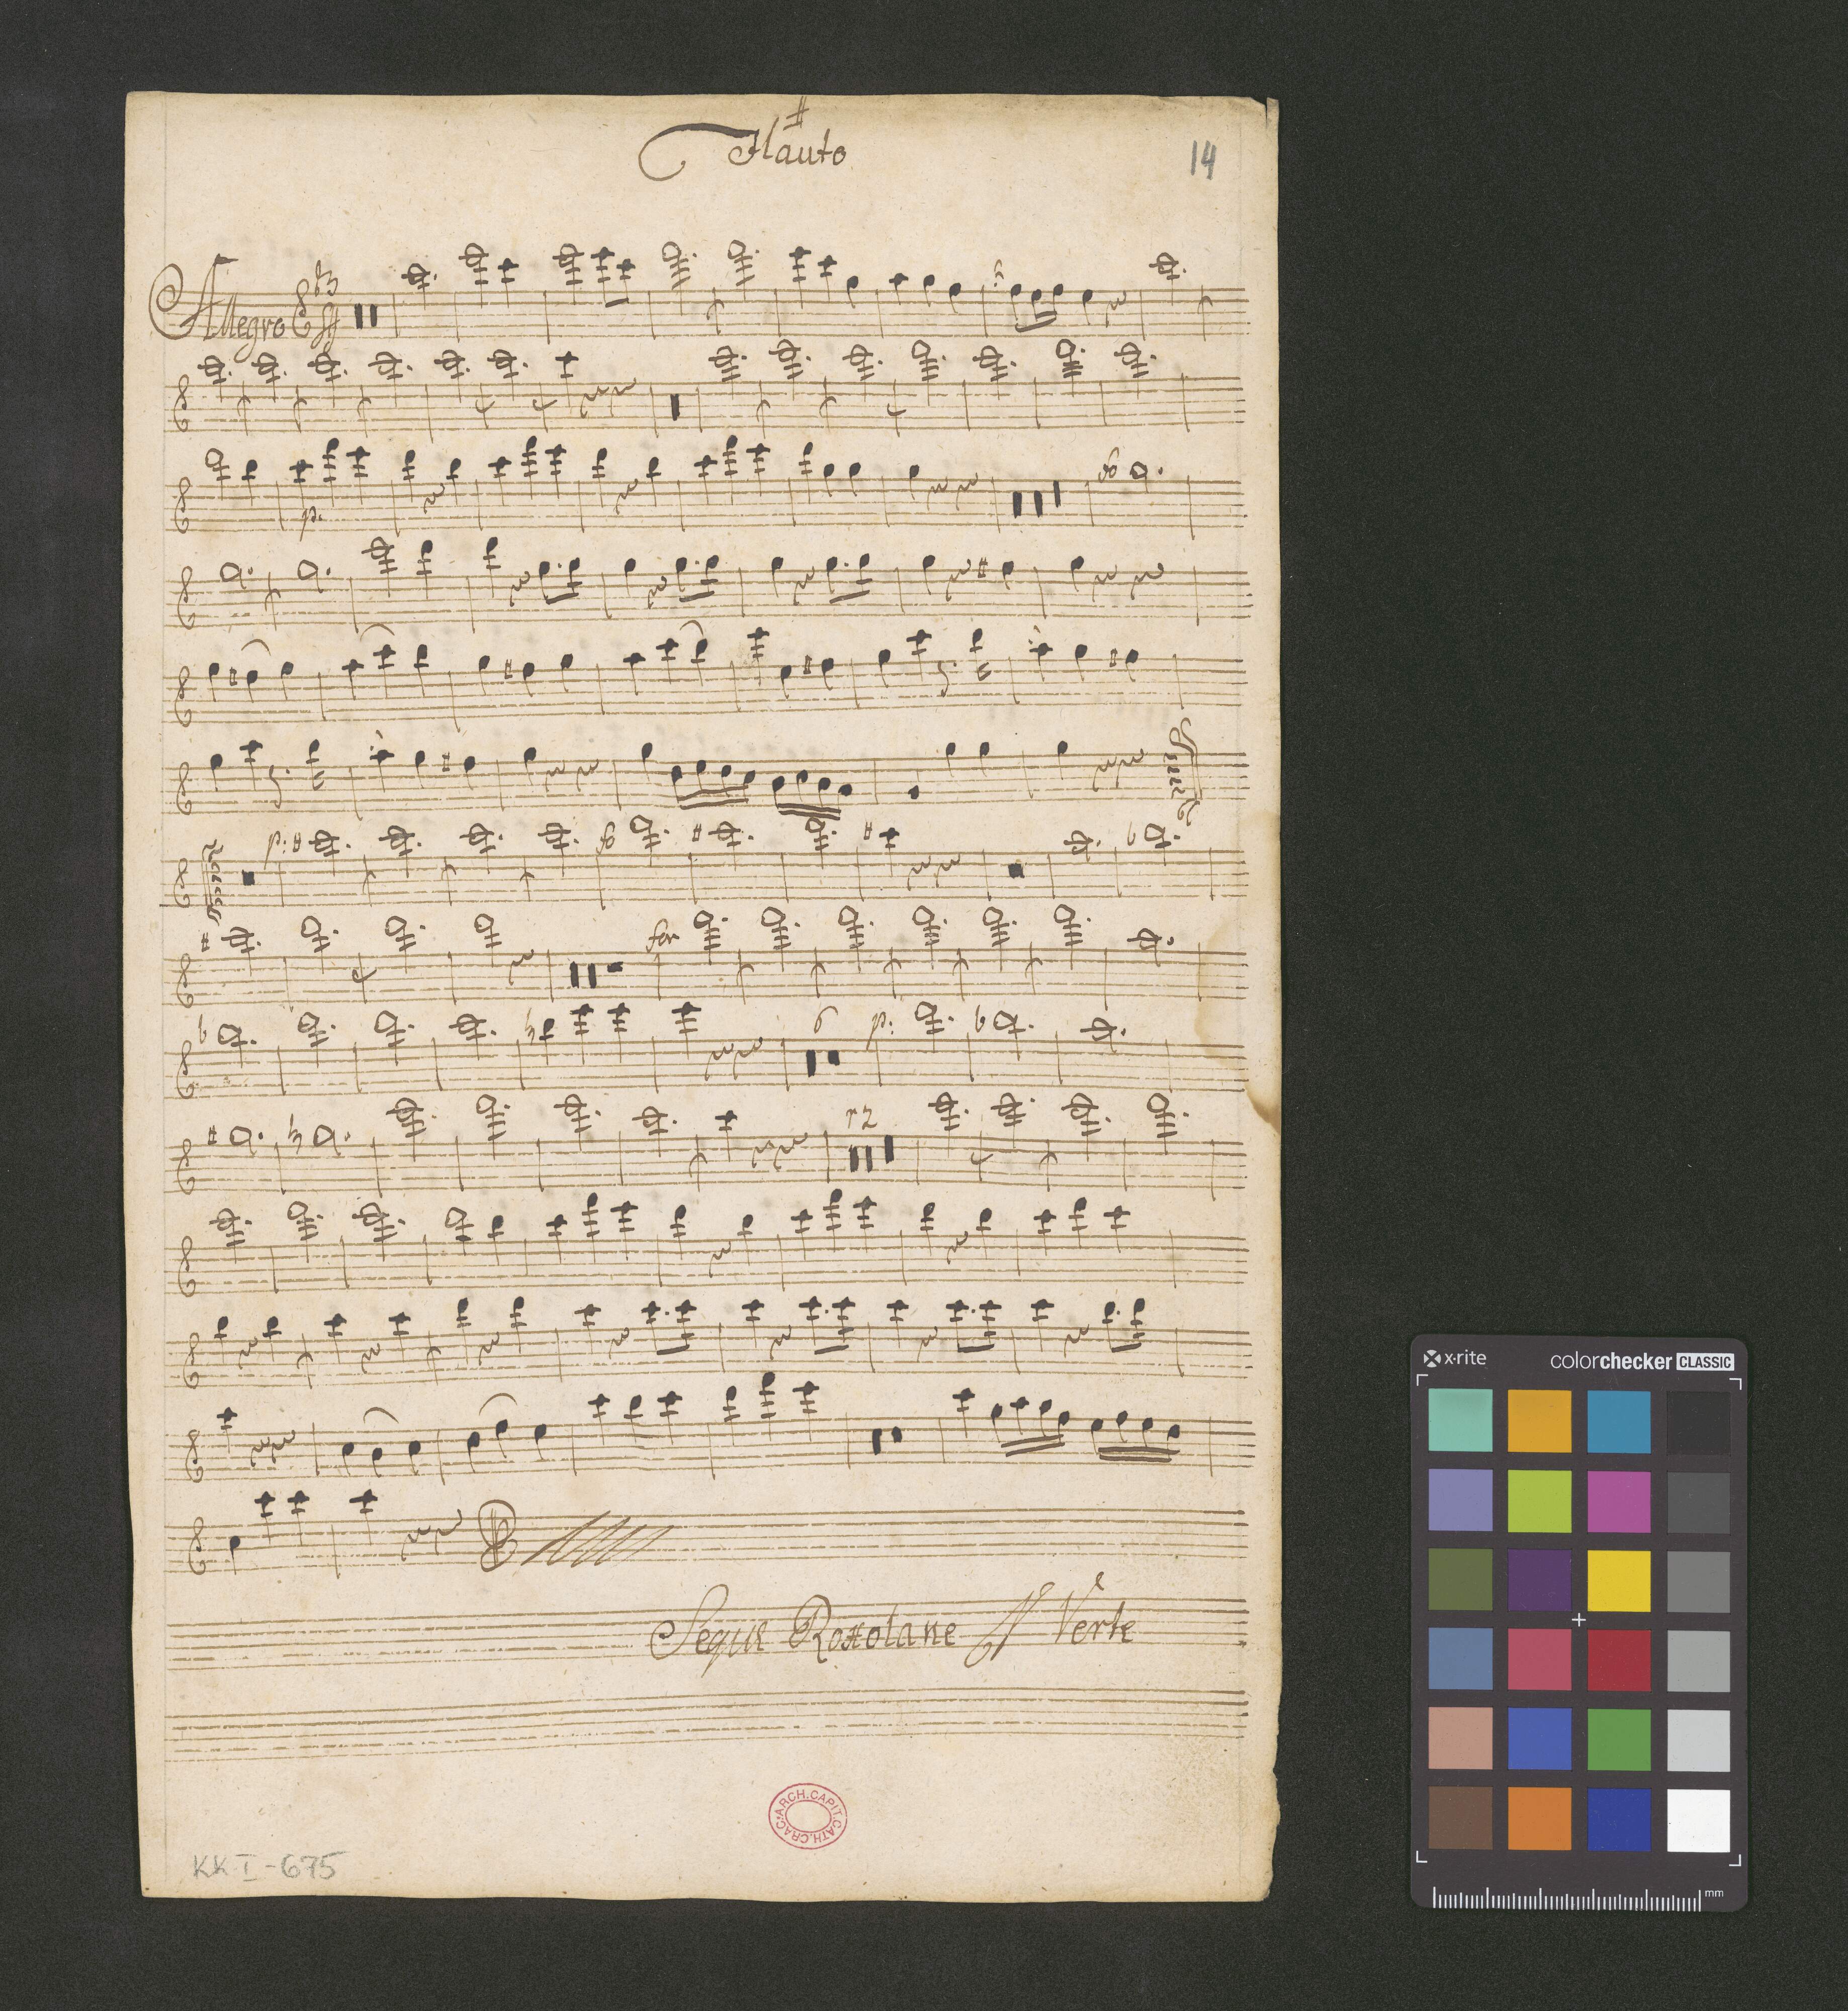 Flauto
14
Allegro
p.
fo
p: fo
for
6 p:
12
Segue Roxolane Verte
ARCH.CAPIT.CATH.CRAC.
KK I-675
x·rite colorchecker CLASSIC
mm